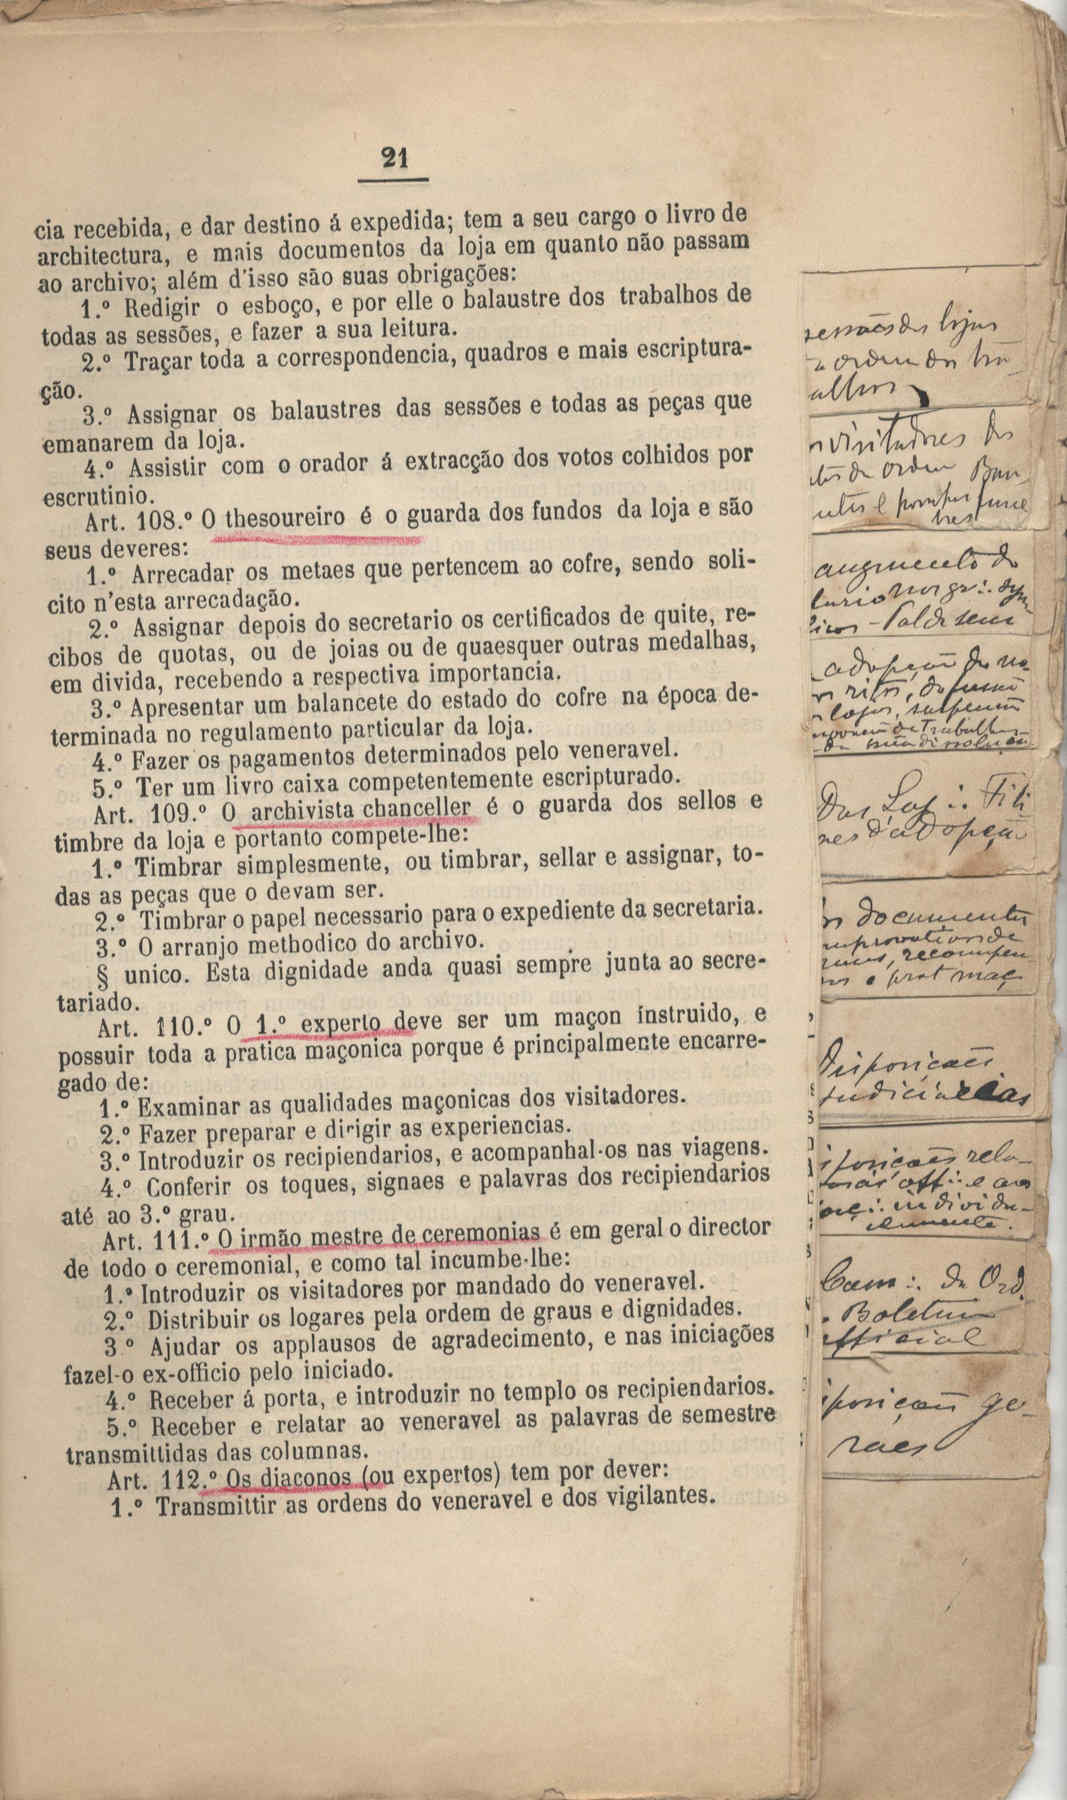 21
cia recebida, e dar destino á expedida; tem a seu cargo o livro de
architectura, e mais documentos da loja em quanto não passam
ao archivo; além d'isso são suas obrigações:
1.º Redigir o esboço, e por elle o balaustre dos trabalhos de
todas as sessões, e fazer a sua leitura.
2.º Traçar toda a correspondencia, quadros e mais escriptura-
ção.
3.º Assignar os balaustres das sessões e todas as peças que
emanarem da loja.
4.º Assistir com o orador á extracção dos votos colhidos por
escrutinio.
Art. 108.º O thesoureiro é o guarda dos fundos da loja e são
seus deveres:
1.º Arrecadar os metaes que pertencem ao cofre, sendo soli-
cito n'esta arrecadação.
2.º Assignar depois do secretario os certificados de quite, re-
cibos de quotas, ou de joias ou de quaesquer outras medalhas,
em divida, recebendo a respectiva importancia.
3.º Apresentar um balancete do estado do cofre na época de-
terminada no regulamento particular da loja.
4.º Fazer os pagamentos determinados pelo veneravel.
5.º Ter um livro caixa competentemente escripturado.
Art. 109.º O archivista chanceller é o guarda dos sellos e
timbre da loja e portanto compete-lhe:
1.º Timbrar simplesmente, ou timbrar, sellar e assignar, to-
das as peças que o devam ser.
2.º Timbrar o papel necessario para o expediente da secretaria.
3.º O arranjo methodico do archivo.
§ unico. Esta dignidade anda quasi sempre junta ao secre-
tariado.
Art. 110.º O 1.º experto deve ser um maçon instruido, e
possuir toda a pratica maçonica porque é principalmente encarre-
gado de:
1.º Examinar as qualidades maçonicas dos visitadores.
2.º Fazer preparar e dirigir as experiencias.
3.º Introduzir os recipiendarios, e acompanhal-os nas viagens.
4.º Conferir os toques, signaes e palavras dos recipiendarios
até ao 3.º grau.
Art. 111.º O irmão mestre de ceremonias é em geral o director
de todo o ceremonial, e como tal incumbe-lhe:
1.º Introduzir os visitadores por mandado do veneravel.
2.º Distribuir os logares pela ordem de graus e dignidades.
3.º Ajudar os applausos de agradecimento, e nas iniciações
fazel-o ex-officio pelo iniciado.
4.º Receber á porta, e introduzir no templo os recipiendarios.
5.º Receber e relatar ao veneravel as palavras de semestre
transmittidas das columnas.
Art. 112.º Os diaconos (ou expertos) tem por dever:
1.º Transmittir as ordens do veneravel e dos vigilantes.
lojas
ordem dos tra-
visitadores das
da ordem Ban-
augmento do
adopção de no-
ritos
lojas, suspensão
Das Loj∴ Fili
d'adopção
documentos
recompen
Disposições
judiciarias
rela-
individu-
almente.
Cam∴ da Ord.
Boletim
official
ge-
raes